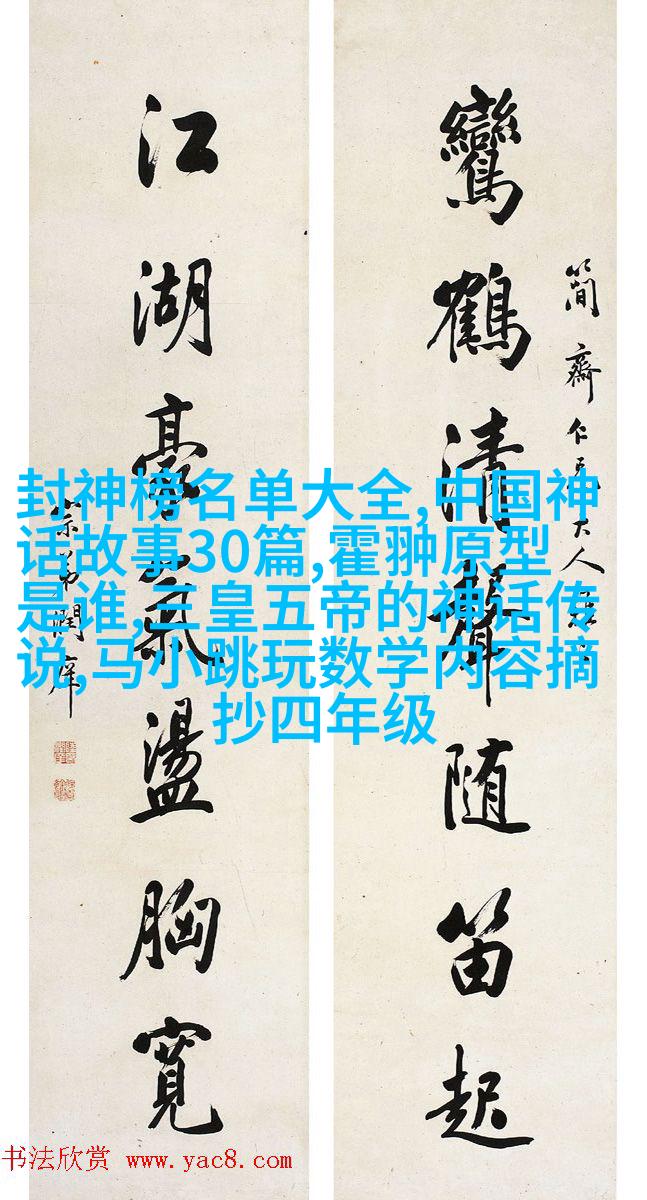 鸞鶴清聲随笛起
簡齋仁兄大人
江湖豪氣盪胸寬
弟潤庠
封神榜名单大全,中国神
话故事30篇,霍翀原型
是谁,三皇五帝的神话传
说,马小跳玩数学内容摘
抄四年级
书法欣赏 www.yac8.com